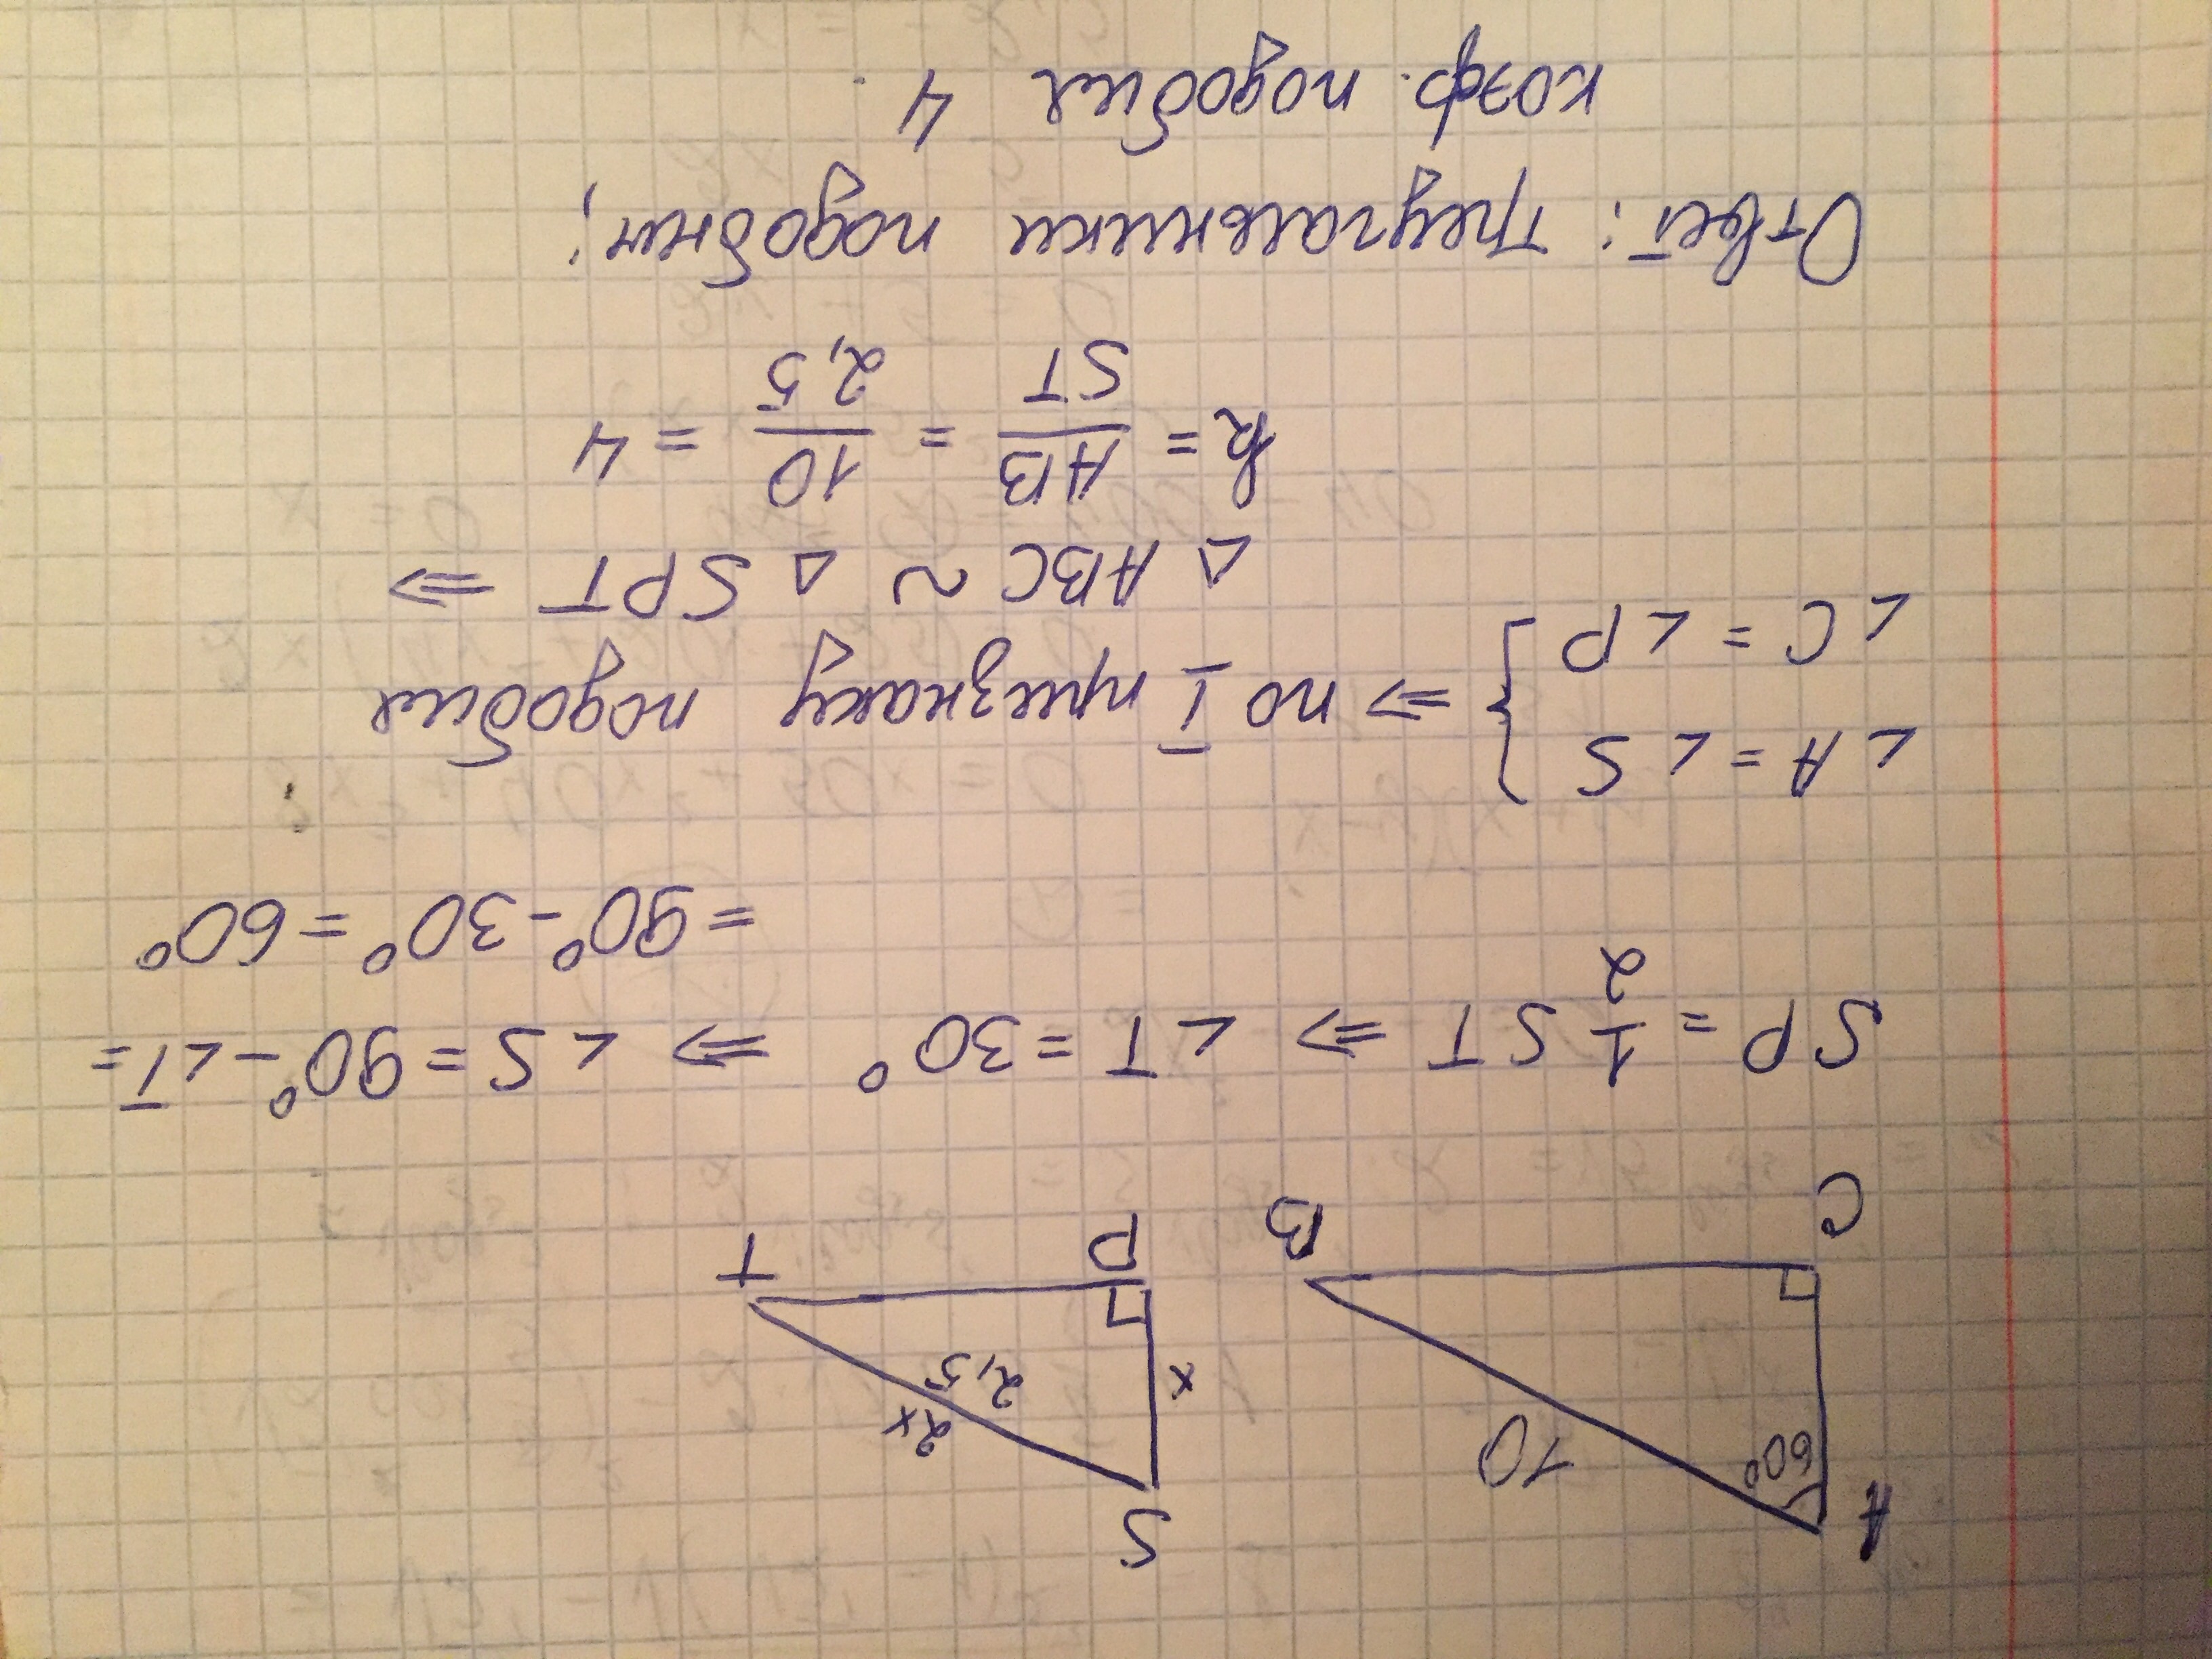 A
60°
10
C
B
S
x
2x
2,5
P
T
SP = 1/2 ST ⇒ ∠T = 30° ⇒ ∠S = 90° - ∠T =
= 90° - 30° = 60°
∠A = ∠S
∠C = ∠P } ⇒ по I признаку подобия
△ABC ~ △SPT ⇒
k = AB/ST = 10/2,5 = 4
Ответ: треугольники подобны;
коэф. подобия 4.